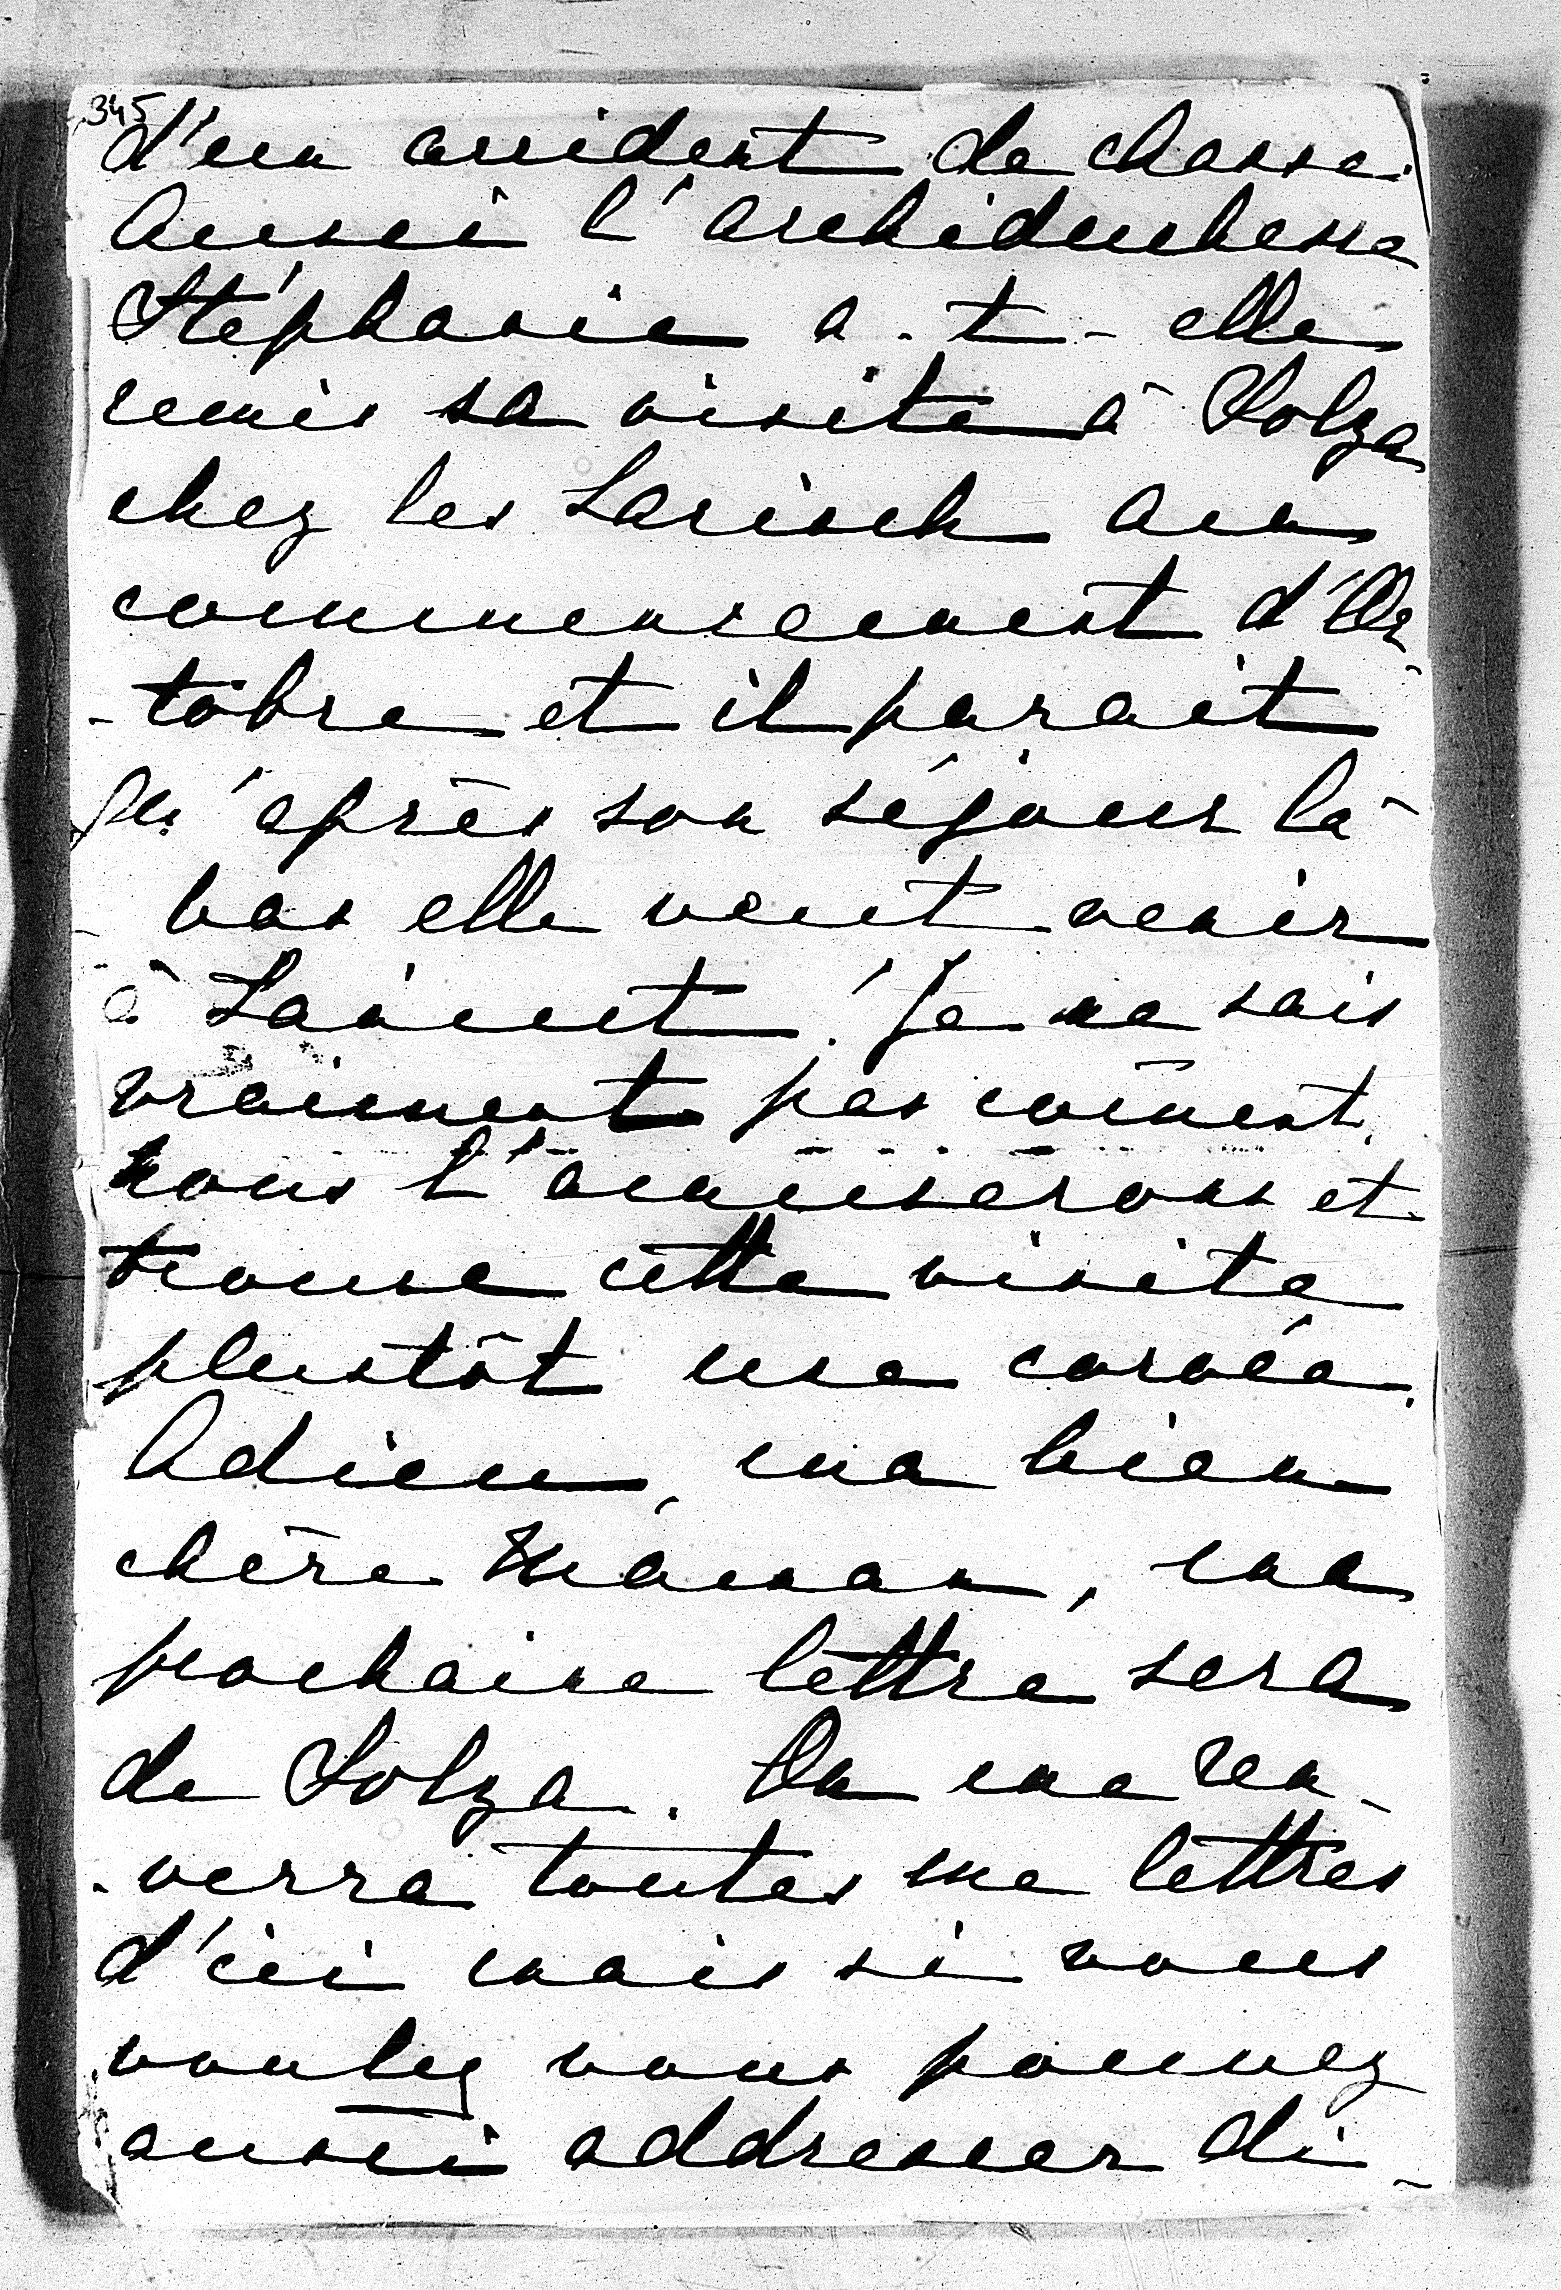 345
d'un accident de chasse.
Aussi l'archiduchesse
Stéphanie a-t-elle
remis sa visite à Solza
chez les Larisch au
commencement d'Oc-
-tobre et il parait
qu'après son séjour là-
-bas elle veut venir
à Lancut! Je ne sais
vraiment pas coment
nous l'amuserons et
trouve cette visite
plustôt une corvée.
Adieu, ma bien
chère Maman, ma
prochaine lettre sera
de Solza. On me ren-
-verra toutes me lettres
d'ici mais si vous
voulez vous pouvez
aussi addresser di-